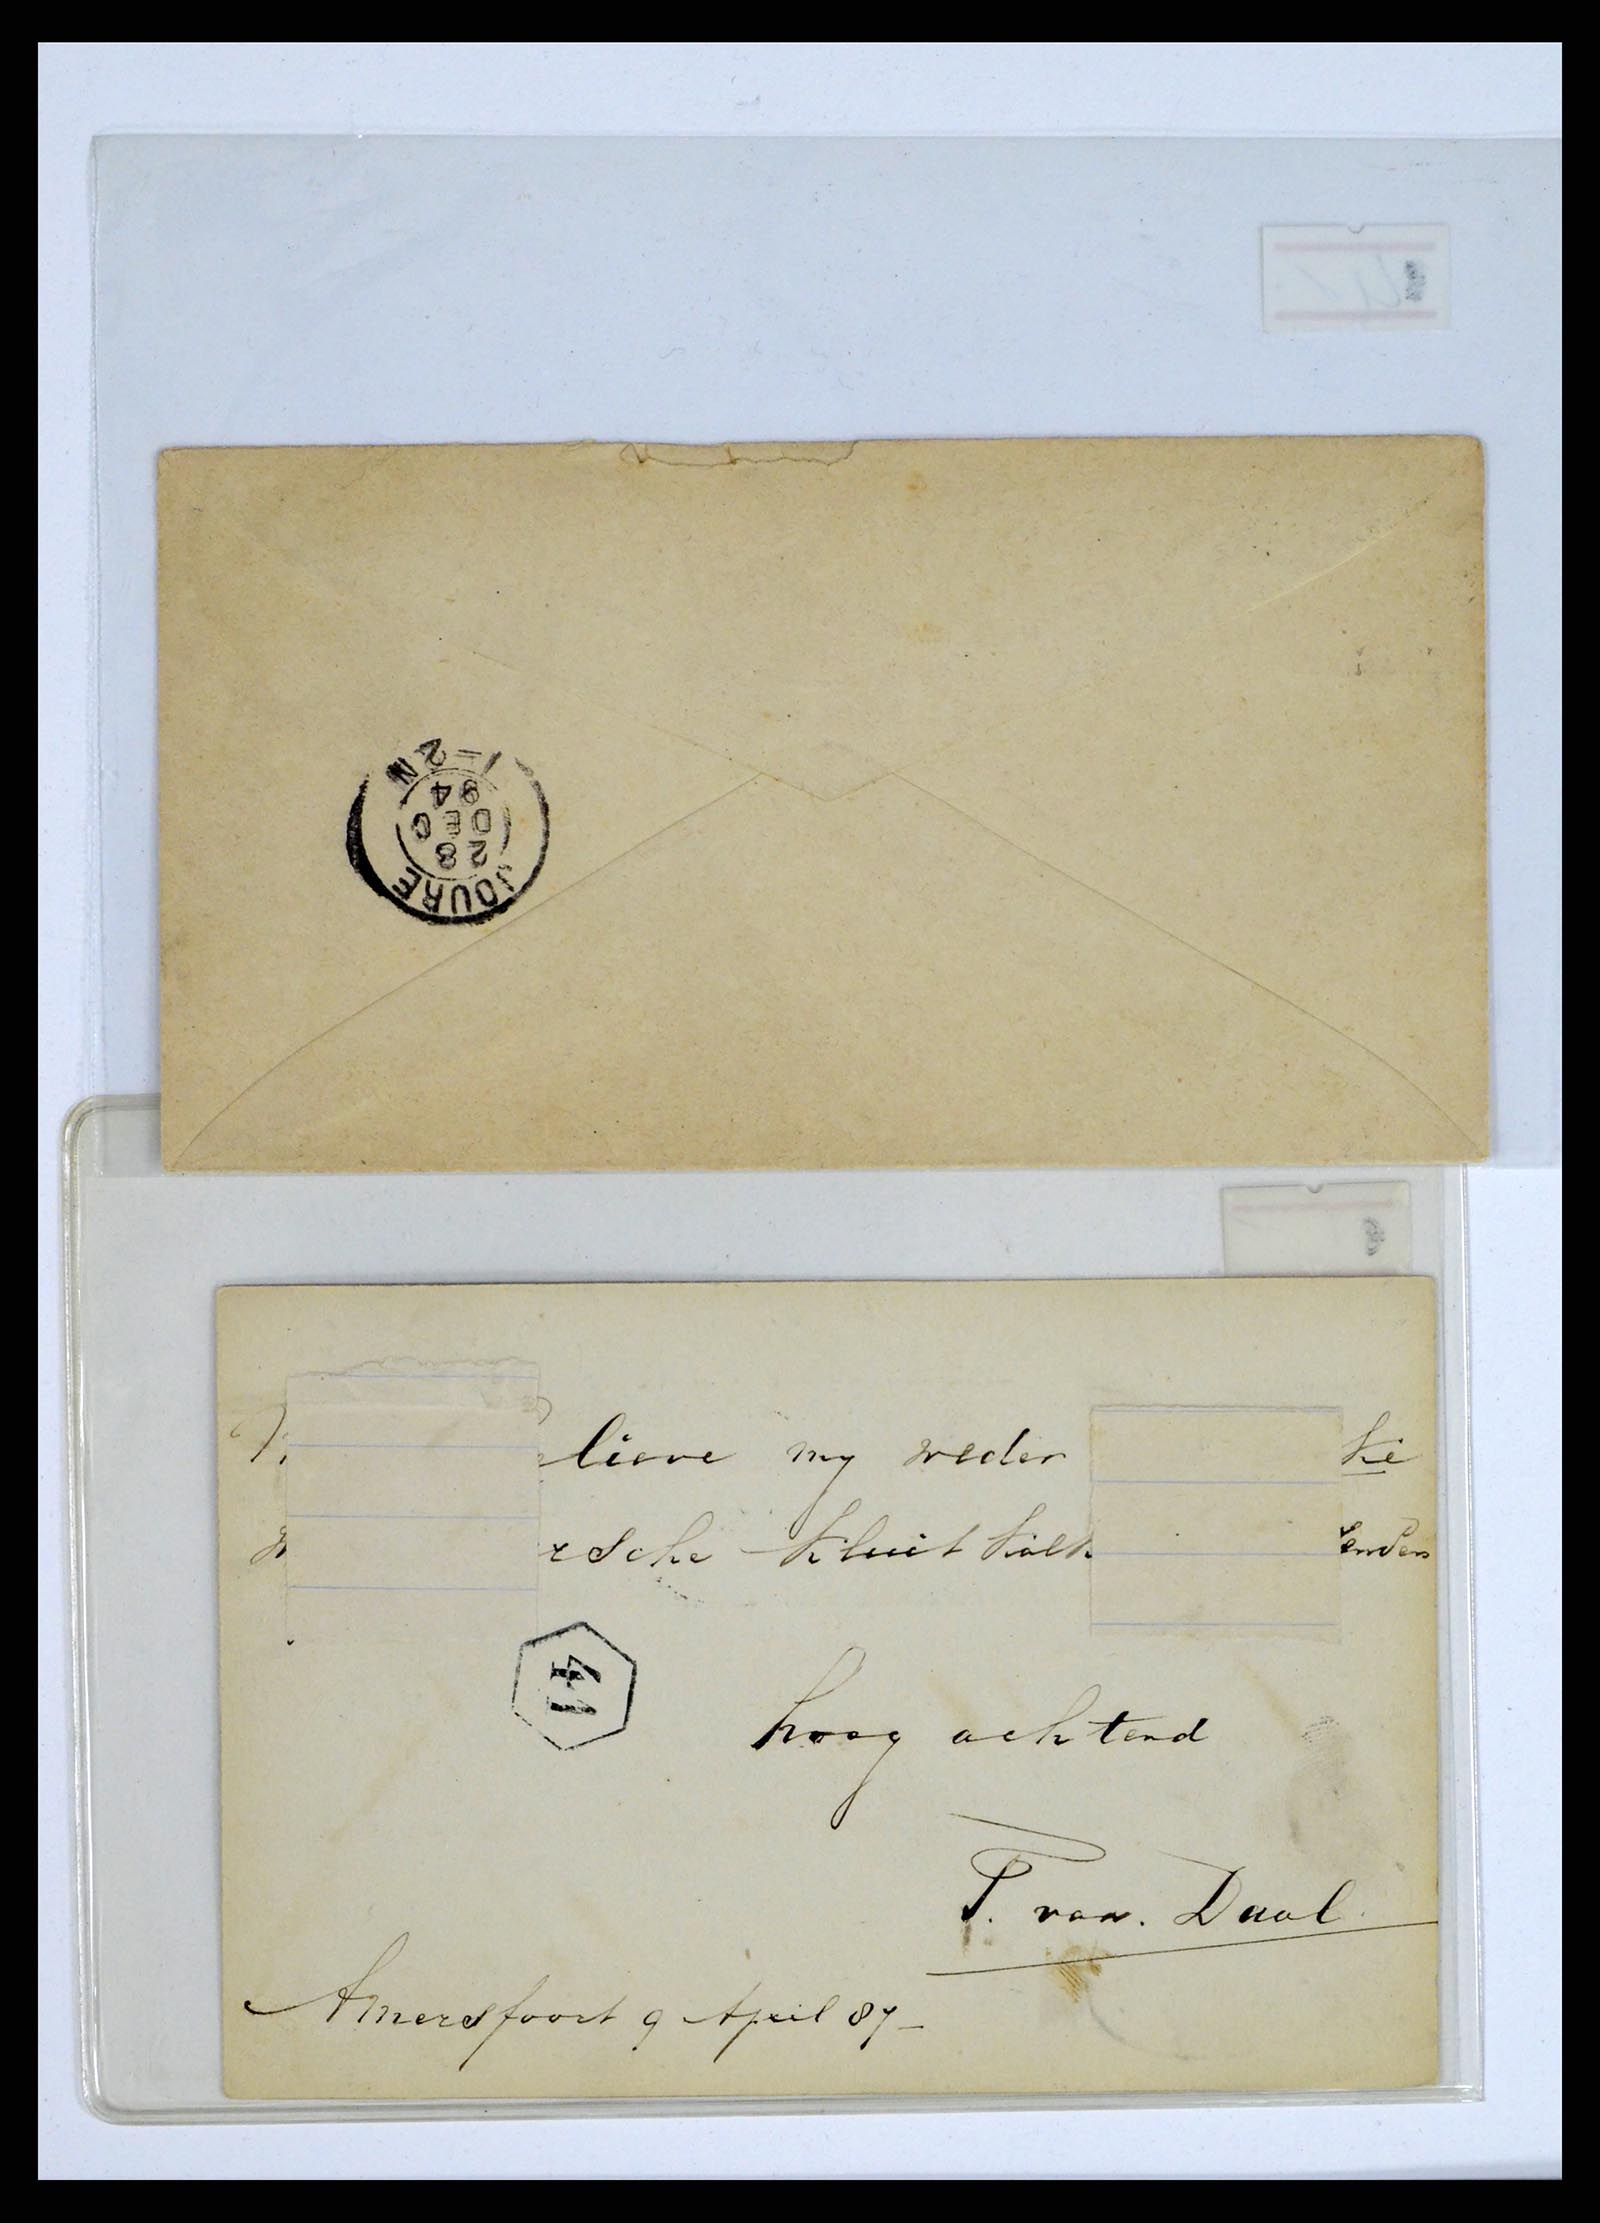 JOURE
28
DEC
94
1-2N
lieve my weder
ke
rsche kluit kalk
enden
41
hoog achtend
T. van. Daal
Amersfoort 9 April 87-